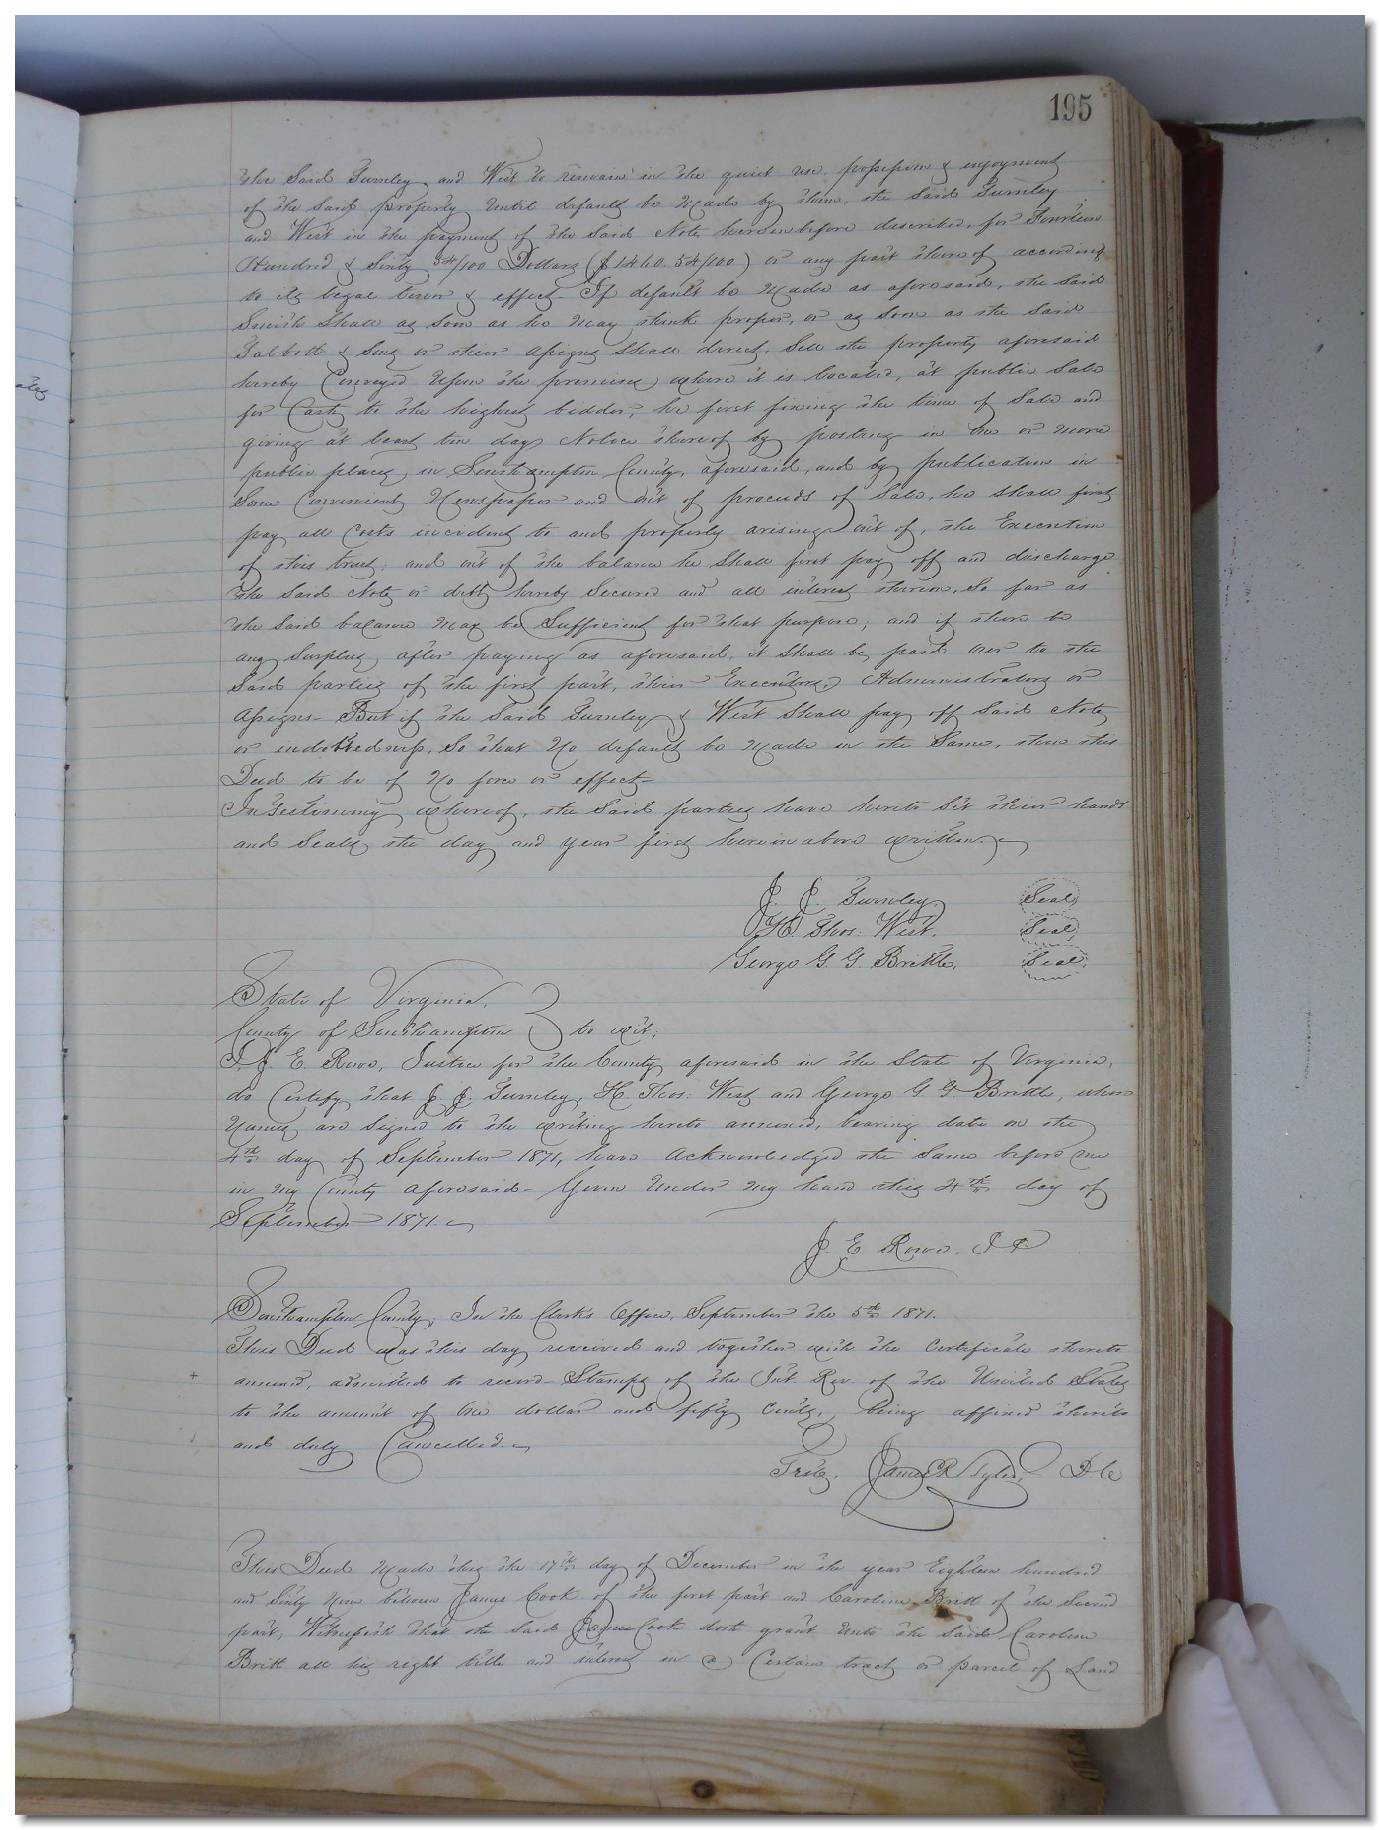 195
the Said Gurnley and West to remain in the quiet use, possession & enjoyment
of the Said property until default be made by them, the Said Gurnley
and West in the payment of the Said Note hereinbefore described, for Fourteen
Hundred & Sixty 54/100 Dollars ($1460.54/100) or any part thereof according
to its legal tenor & effect - If default be made as aforesaid, the Said
Smith Shall as Soon as he may think proper, or as Soon as the Said
Talbott & Sons or their assigns Shall direct, Sell the property aforesaid
hereby Conveyed upon the premises where it is located, at public Sale
for Cash to the highest bidder, he first fixing the time of Sale and
giving at least ten days Notice thereof by posting in one or more
public places in Southampton County, aforesaid, and by publication in
Some Convenient Newspaper and out of proceeds of Sale, he Shall first
pay all Costs incident to and properly arising out of, the Execution
of this trust; and out of the balance he Shall first pay off and discharge
the Said Note or debt hereby Secured and all interest thereon, So far as
the Said balance may be Sufficient for that purpose; and if there be
any Surplus after paying as aforesaid, it Shall be paid over to the
Said parties of the first part, their Executors, Administrators or
assigns - But if the Said Gurnley & West Shall pay off Said Note
or indebtedness, So that No default be made in the Same, then this
Deed to be of No force or effect -
In Testimony whereof, the Said parties have hereto Set their hands
and Seals the day and year first hereinabove written.
J. J. Gurnley, Seal
H. Thos: West. Seal
George G. G. Brittle, Seal
State of Virginia,
County of Southampton to wit:
I J. E. Rowe, Justice for the County aforesaid in the State of Virginia,
do Certify that J. J. Gurnley, H. Thos: West and George G G Brittle, whose
Names are Signed to the writing hereto annexed, bearing date on the
4th day of September 1871, have acknowledged the Same before me
in my County aforesaid - Given under my hand this 4th day of
September 1871.
J. E Rowe. J P
Southampton County, In the Clerk's Office, September the 5th 1871.
This Deed was this day received and together with the Certificate thereto
+ annexed, admitted to record - Stamps of the Int. Rev. of the United States
to the amount of One dollar and fifty cents, being affixed thereto
and duly Cancelled.
Teste. James R Tyler, D C
This Deed made this the 17th day of December in the year Eighteen hundred
and Sixty Nine between James Cook of the first part and Caroline Britt of the Second
part, Witnesseth that the Said James Cook doth grant unto the Said Caroline
Britt all his right title and interest in a Certain tract or parcel of Land